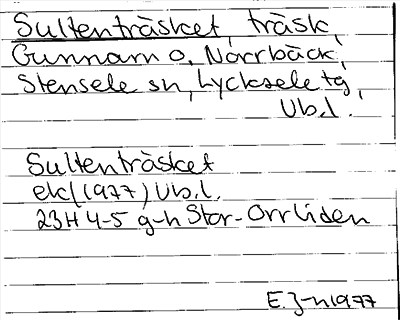 Sultenträsket, träsk,
Gunnarn o, Norrbäck,
Stensele sn, Lycksele tg,
Vb.l.
Sultenträsket
ek (1977) Vb.l.
23H 4-5 g-h Stor-Orrliden
E.J-n 1977